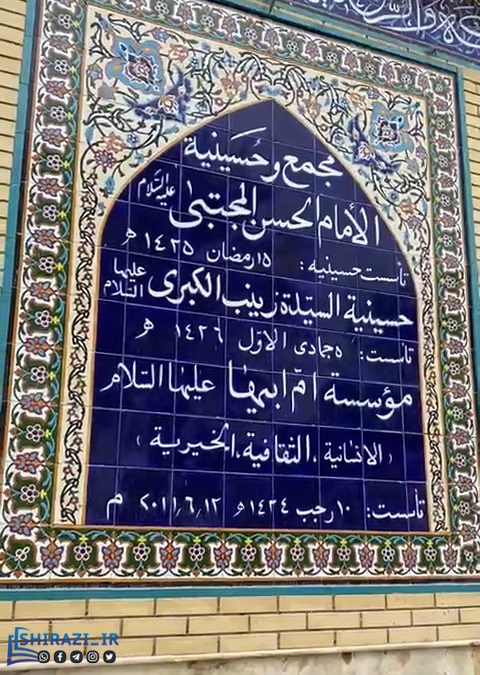 مجمع وحسينية
الأمام الحسن المجتبى عليه السّلام
تأسست حسينيه: ١٥ رمضان ١٤٢٥ هـ
حسينية السيّدة زينب الكبرى عليها السّلام
تأسست: ٥ جمادى الاوّل ١٤٢٦ هـ
مؤسسة امّ ابيها عليها السّلام
(الانسانية ، الثقافية ، الخيرية)
تأسست: ١٠ رجب ١٤٢٤هـ ٢٠١١,٦,١٢ م
SHIRAZI_IR